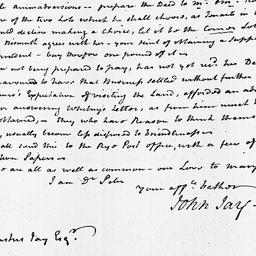 animadversions — prepare the Deed to Mr.
of the two lots which he shall choose, as Tenants in
ould decline making a Choice, let it be the Corner Lot
Bismuth agrees with her — your kind of obtaining a Suppl
— buy Burgoo one pound of it —
not being prepared to pay, has not yet recd. her De
avoured to have that Business settled without further
Expectation of visiting the Land, afforded an ad
or answering Whitney's letter, as from him must
obtained, — they who have Reason to think them
usually become less disposed to Friendliness
all send this to the Rye Post office, with a few of
Papers —
are all as well as common — our Love to mary
I am Dr. Peter
your affte. Father
John Jay —
Jay Esqr.